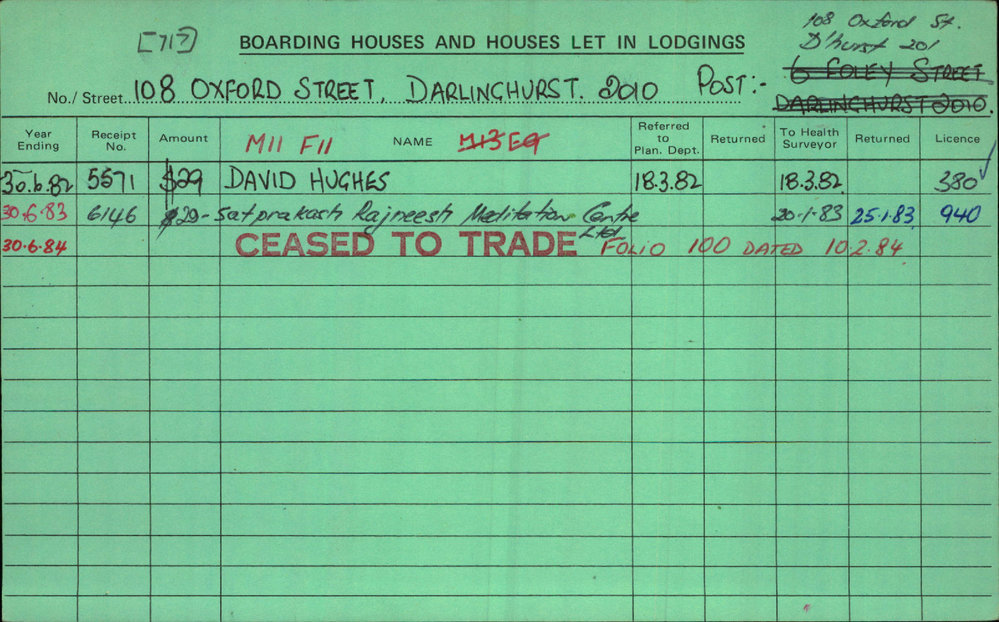 [717]
BOARDING HOUSES AND HOUSES LET IN LODGINGS
108 Oxford St.
D'hurst 201
6 FOLEY STREET
DARLINGHURST 2010.
No./Street 108 OXFORD STREET, DARLINGHURST. 2010 POST:-
Year Ending Receipt No. Amount M11 F11 NAME Referred to Plan. Dept. Returned To Health Surveyor Returned Licence
30.6.82 5571 $29 DAVID HUGHES 18.3.82 18.3.82 380
30.6.83 6146 $29- Satprakash Rajneesh Meditation Centre Ltd 20.1.83 25.1.83 940
30.6.84 CEASED TO TRADE FOLIO 100 DATED 10.2.84